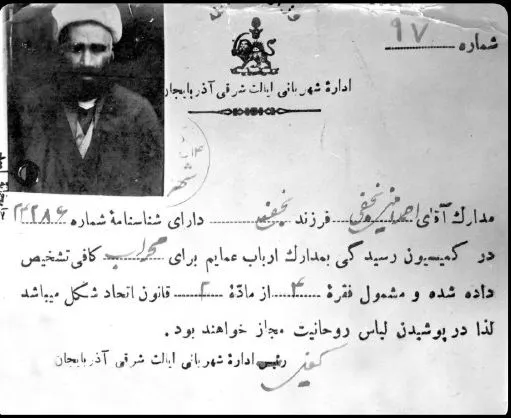 شماره ۹۷
ادارهٔ شهربانی ایالت شرقی آذربایجان
مدارك آقای احمد نجفی فرزند نجف دارای شناسنامهٔ شماره ۲۲۸۶
در کمیسیون رسیدگی بمدارك ارباب عمایم برای محراب کافی تشخیص
داده شده و مشمول فقرهٔ ۴ از مادّهٔ ۲ قانون اتحاد شکل میباشد
لذا در پوشیدن لباس روحانیت مجاز خواهند بود.
رئیس ادارهٔ شهربانی ایالت شرقی آذربایجان